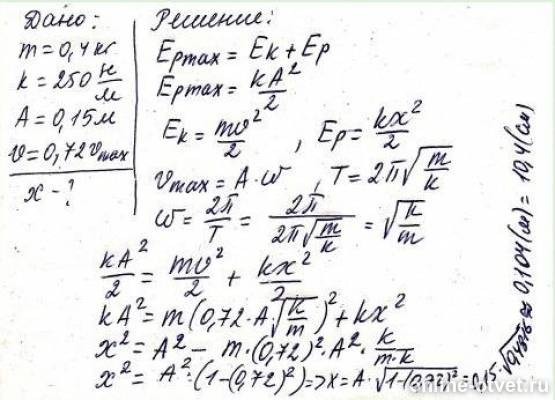 Дано:
m = 0,4 кг
k = 250 Н/м
A = 0,15 м
v = 0,72 vmax
x - ?
Решение:
Epmax = Ek + Ep
Epmax = kA²/2
Ek = mv²/2 , Ep = kx²/2
vmax = A · ω , T = 2π√(m/k)
ω = 2π/T = 2π/(2π√(m/k)) = √(k/m)
kA²/2 = mv²/2 + kx²/2
kA² = m(0,72 · A√(k/m))² + kx²
x² = A² - m · (0,72)² · A² · k/(m·k)
x² = A² · (1-(0,72)²) => x = A · √(1-(0,72)²) = 0,15 · ≈ 0,104 (м) = 10,4 (см)
online-otvet.ru